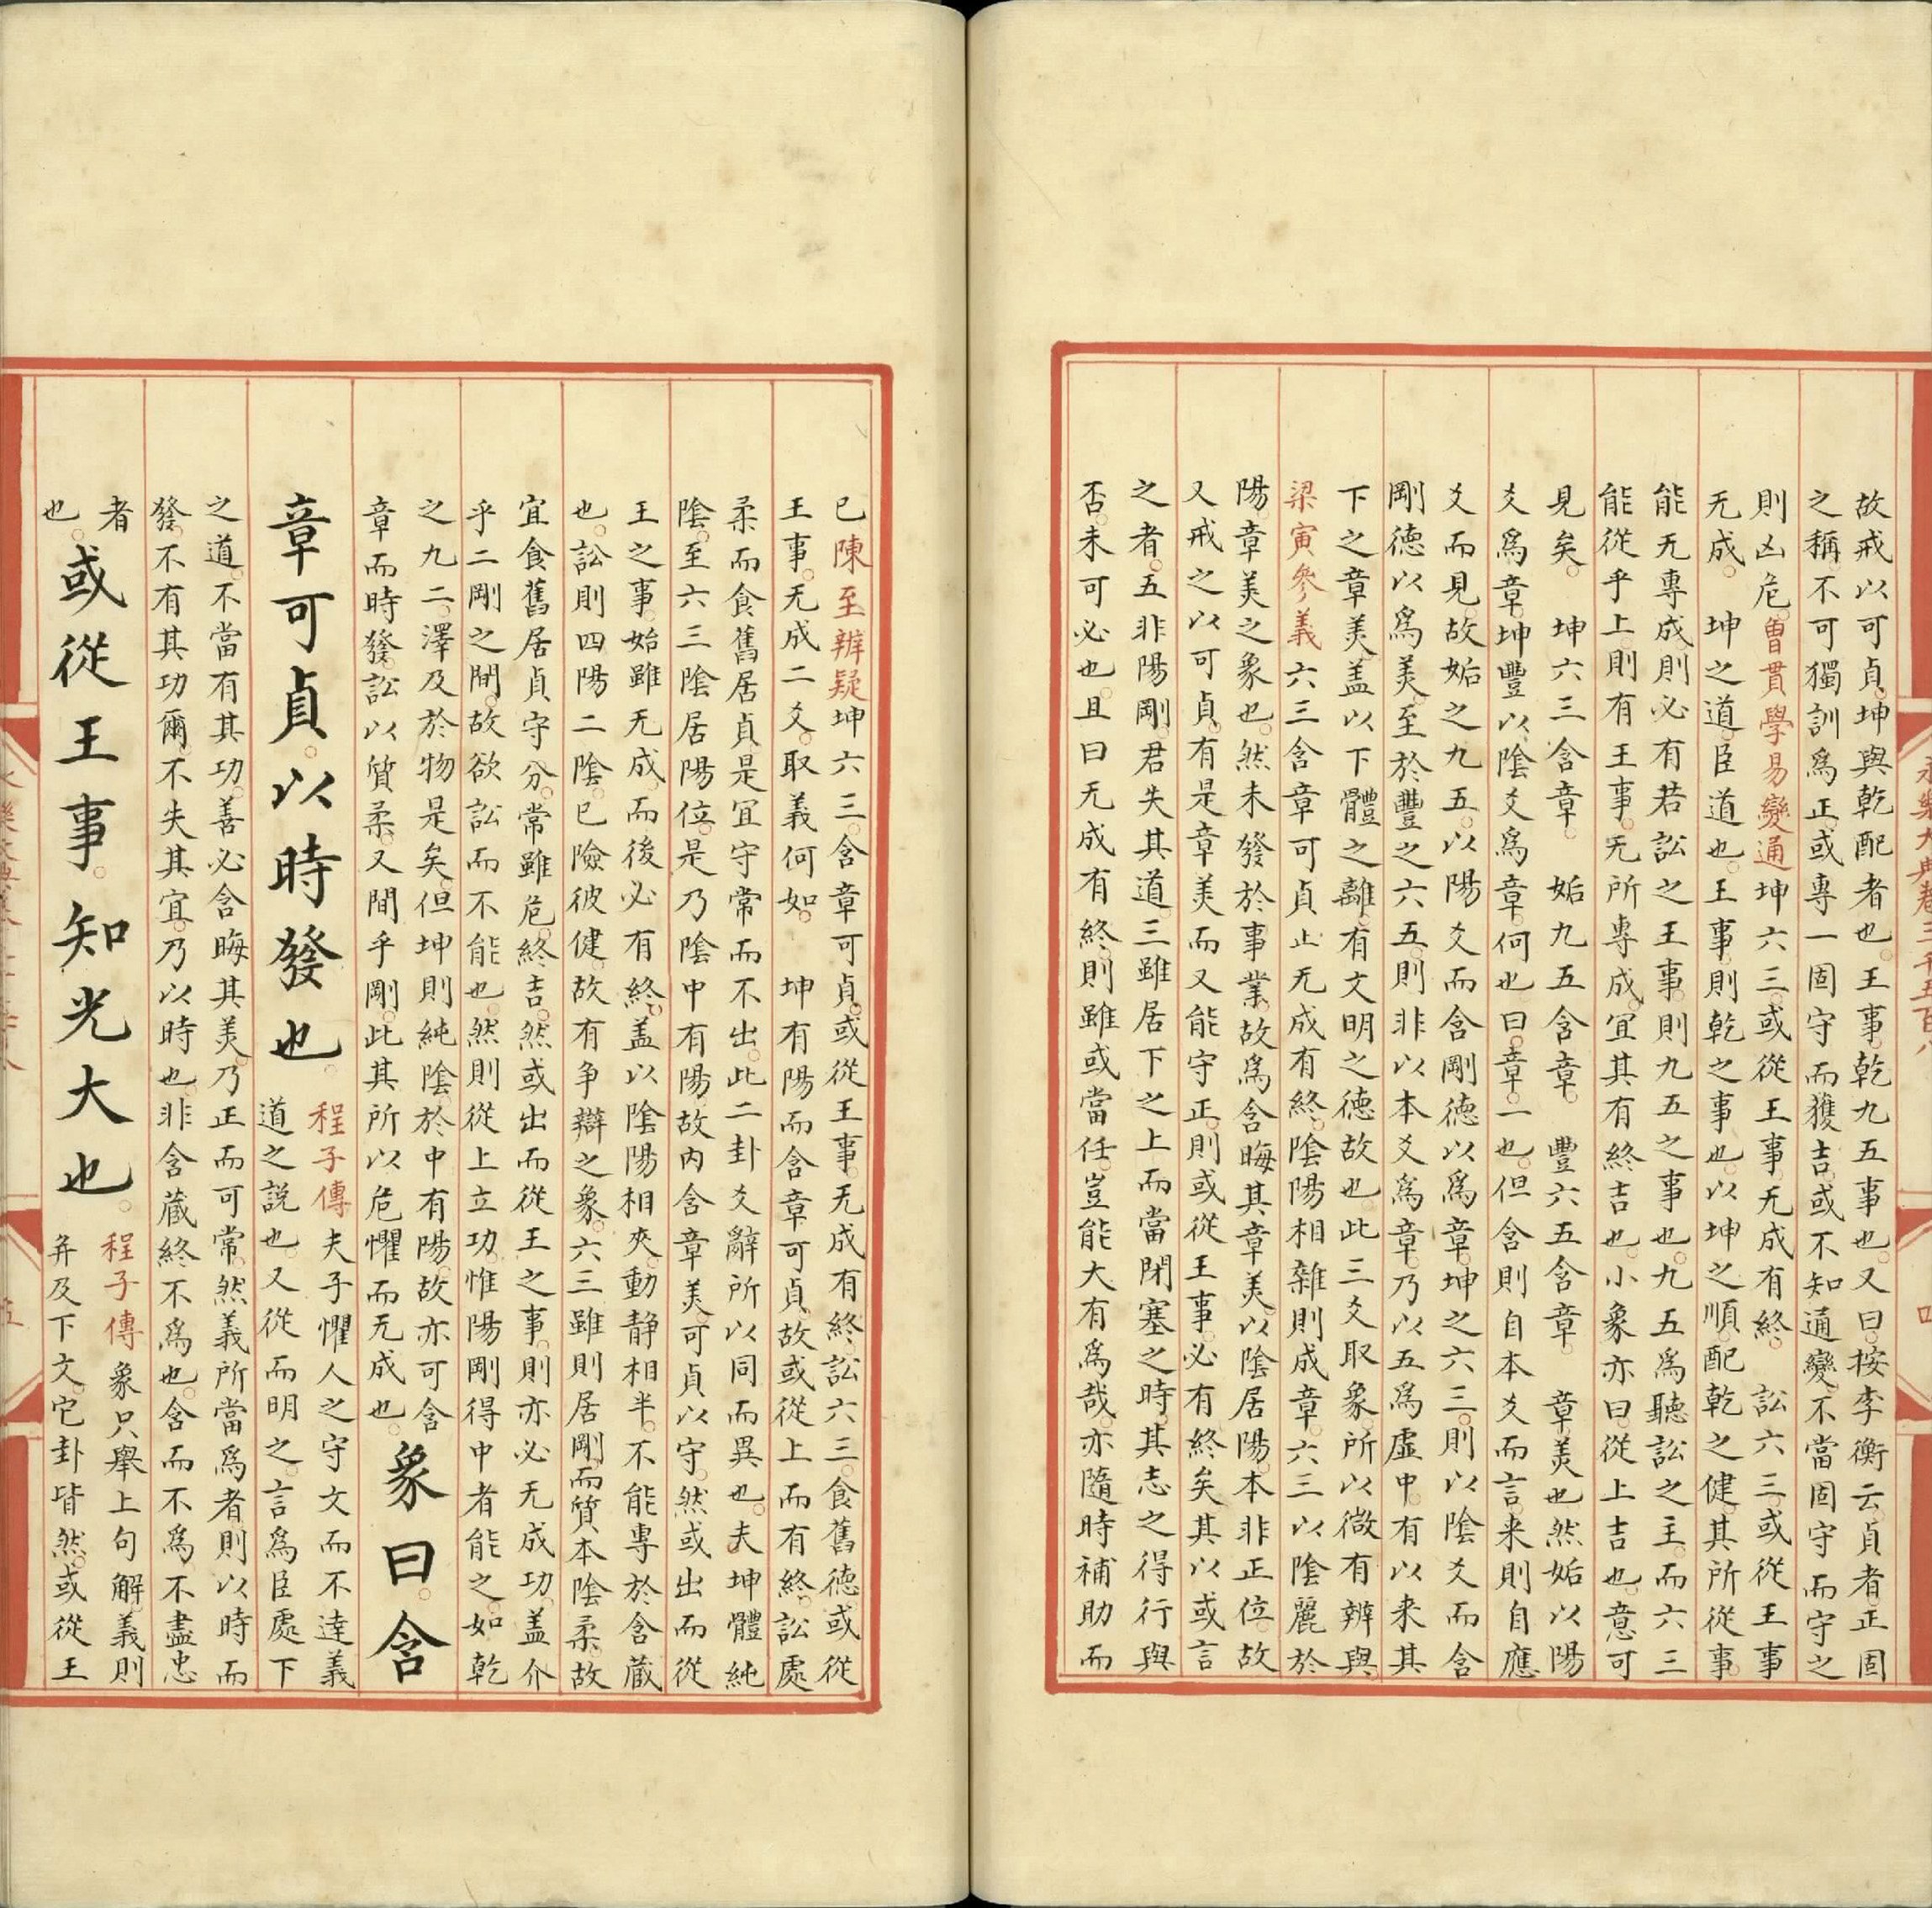 故戒以可貞坤與乾配者也王事乾九五事也又曰按李衡云貞者正固
之稱不可獨訓爲正或專一固守而獲吉或不知通變不當固守而守之
則凶危曽貫學易變通坤六三或從王事无成有終　訟六三或從王事
无成　坤之道臣道也王事則乾之事也以坤之順配乾之健其所從事
能无專成則必有若訟之王事則九五之事也九五爲聽訟之主而六三
能從乎上則有王事无所專成宜其有終吉也小象亦曰從上吉也意可
見矣　坤六三含章　姤九五含章　豐六五含章　章美也然姤以陽
爻爲章坤豐以陰爻爲章何也曰章一也但含則自本爻而言来則自應
爻而見故姤之九五以陽爻而含剛德以爲章坤之六三則以陰爻而含
剛德以爲美至於豐之六五則非以本爻爲章乃以五爲虛中有以来其
下之章美盖以下體之離有文明之德故也此三爻取象所以微有辨與
梁寅參義六三含章可貞止无成有終陰陽相雜則成章六三以陰麗於
陽章美之象也然未發於事業故爲含晦其章美以陰居陽本非正位故
又戒之以可貞有是章美而又能守正則或從王事必有終矣其以或言
之者五非陽剛君失其道三雖居下之上而當閉塞之時其志之得行與
否未可必也且曰无成有終則雖或當任豈能大有爲哉亦隨時補助而
已陳至辨疑坤六三含章可貞或從王事无成有終訟六三食舊德或從
王事无成二爻取義何如　坤有陽而含章可貞故或從上而有終訟處
柔而食舊居貞是宜守常而不出此二卦爻辭所以同而異也夫坤體純
陰至六三陰居陽位是乃陰中有陽故內含章美可貞以守然或出而從
王之事始雖无成而後必有終盖以陰陽相夾動静相半不能專於含蔵
也訟則四陽二陰已險彼健故有争辯之象六三雖則居剛而質本陰柔故
宜食舊居貞守分常雖危終吉然或出而從王之事則亦必无成功盖介
乎二剛之閒故欲訟而不能也然則從上立功惟陽剛得中者能之如乾
之九二澤及於物是矣但坤則純陰於中有陽故亦可含
章而時發訟以質柔又間乎剛此其所以危懼而无成也
象曰含
章可貞以時發也
程子傳夫子懼人之守文而不達義
道之說也又從而明之言爲臣處下
之道不當有其功善必含晦其美乃正而可常然義所當爲者則以時而
發不有其功爾不失其宜乃以時也非含蔵終不爲也含而不爲不盡忠
者
也
或從王事知光大也
程子傳象只舉上句解義則
并及下文它卦皆然或從王